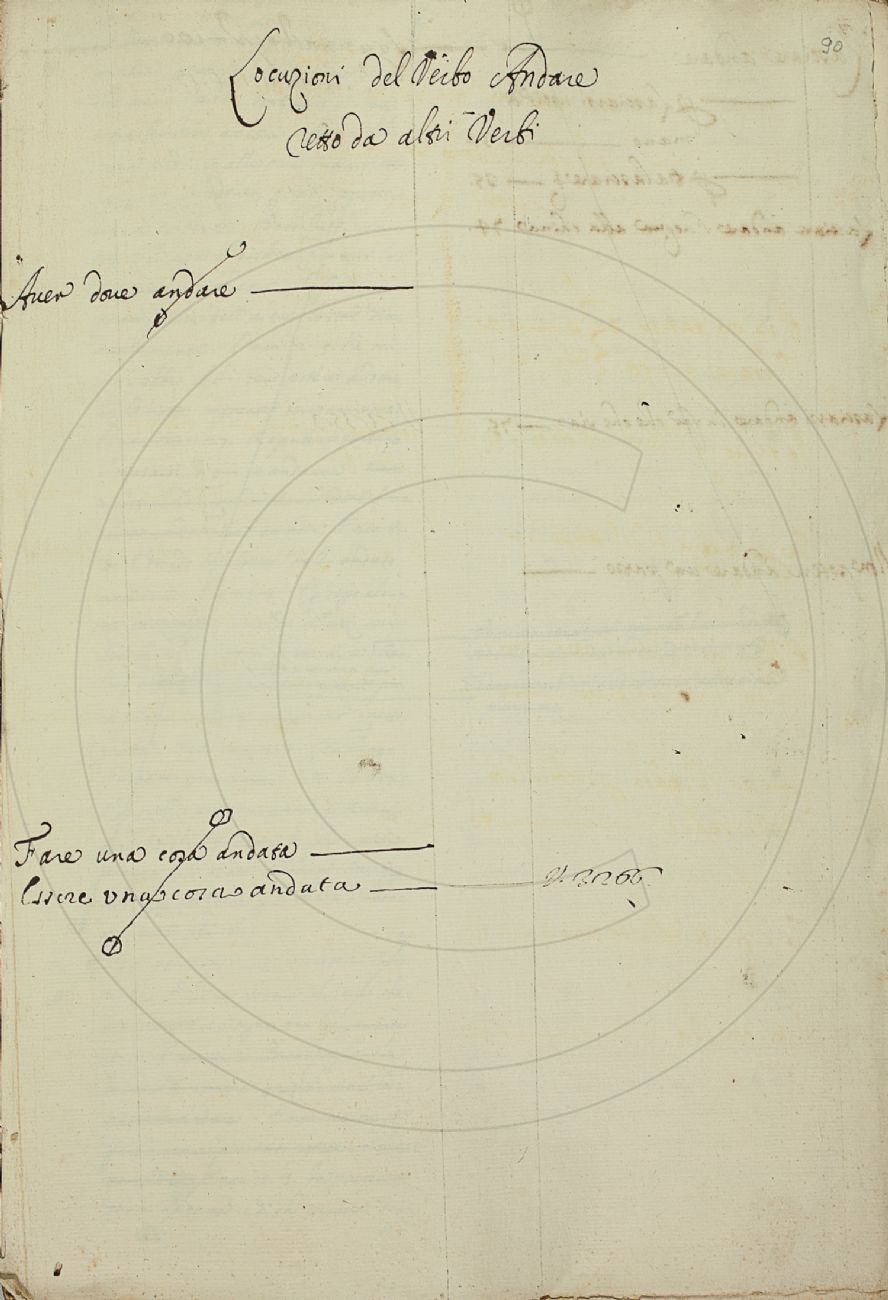 90
Locuzioni del Verbo Andare
retto da altri Verbi
Auer doue andare
Fare una cosa andata
Essere una cosa andata